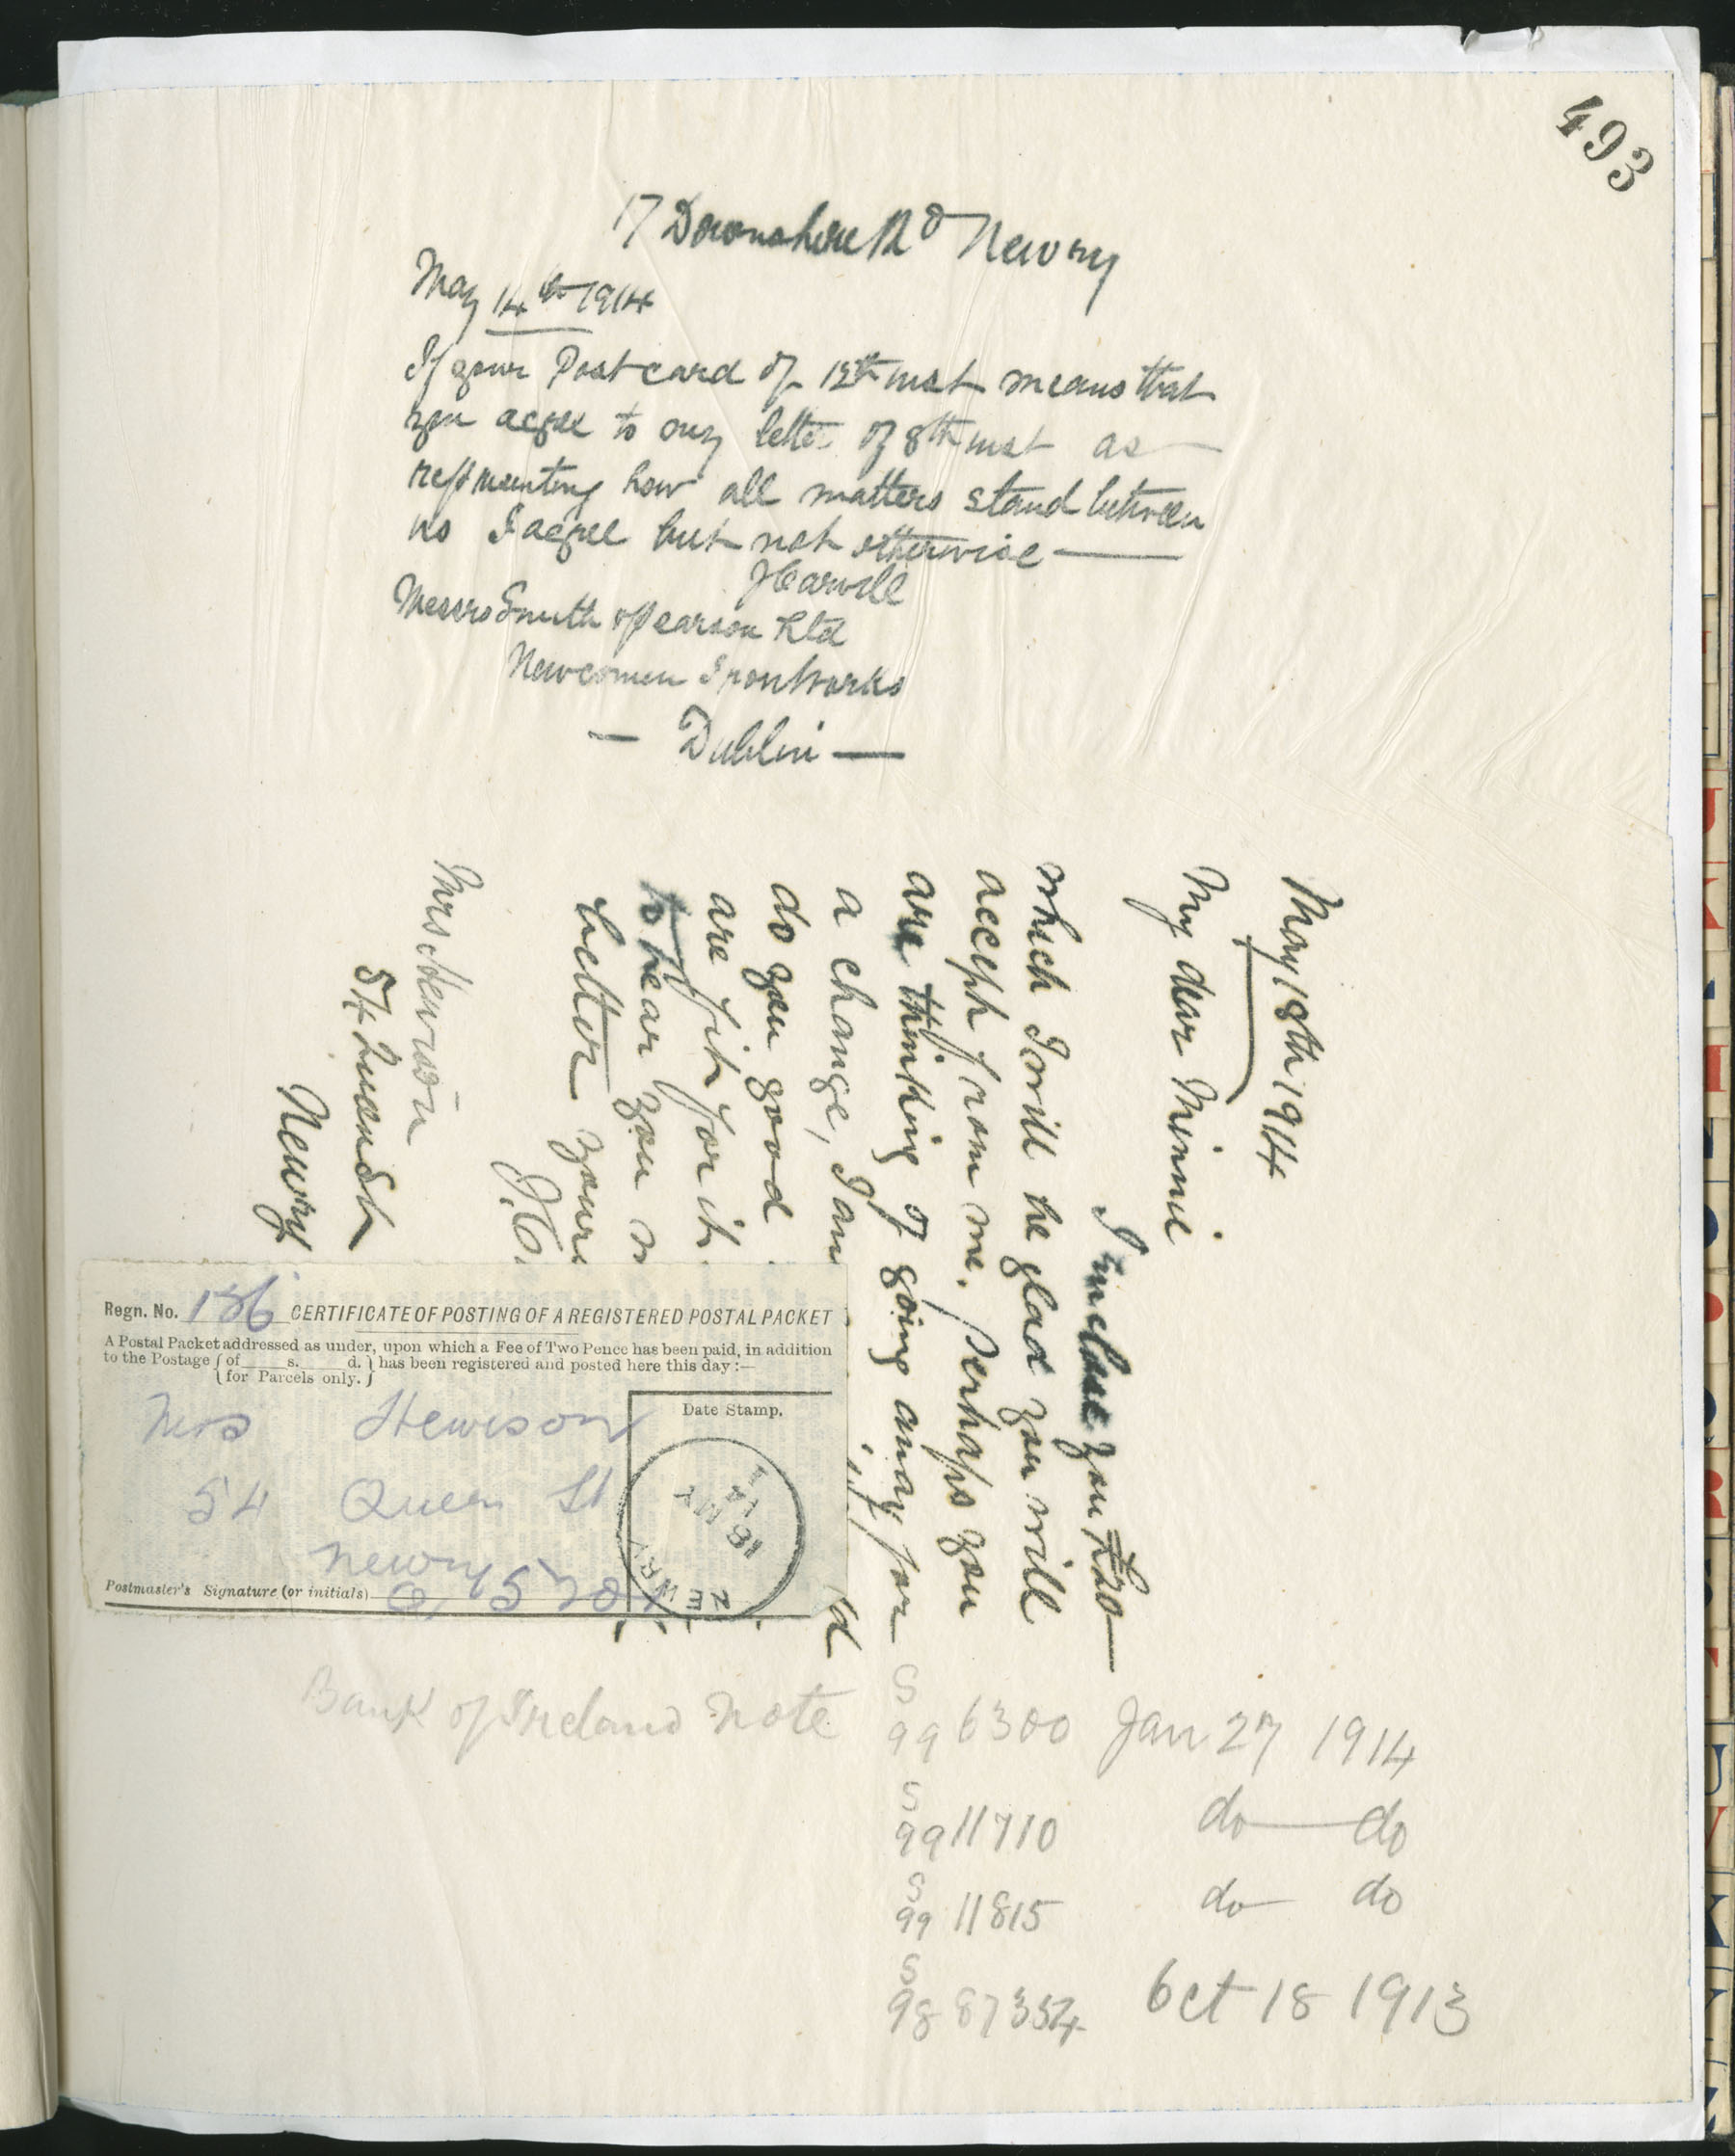 493
17 Devonshire Rd Newry
May 14th 1914
If your Postcard of 12th inst means that
you agree to my letter of 8th inst as
representing how all matters stand between
us I agree but not otherwise
J Carvill
Messrs Smith & Pearson Ltd
Newcomen Iron Works
— Dublin —
May 18th 1914
My dear Minnie
I inclose you
which I will be glad you will
accept from me. Perhaps you
are thinking of going away for
a change, I am
do you good
are fit for it
to hear you
better
J.C.
Mrs Hewson
54 Queen St
Newry
Regn. No. 186 CERTIFICATE OF POSTING OF A REGISTERED POSTAL PACKET
A Postal Packet addressed as under, upon which a Fee of Two Pence has been paid, in addition
to the Postage { of ____ s. ____ d. } has been registered and posted here this day :—
{ for Parcels only. }
Date Stamp.
Mrs Hewison
54 Queen St
Newry
Postmaster's Signature (or initials)
NEWRY
18 MY
14
Bank of Ireland Note S/99 6300 Jan 27 1914
S/99 11710 do — do
S/99 11815 do do
S/98 87354 Oct 18 1913